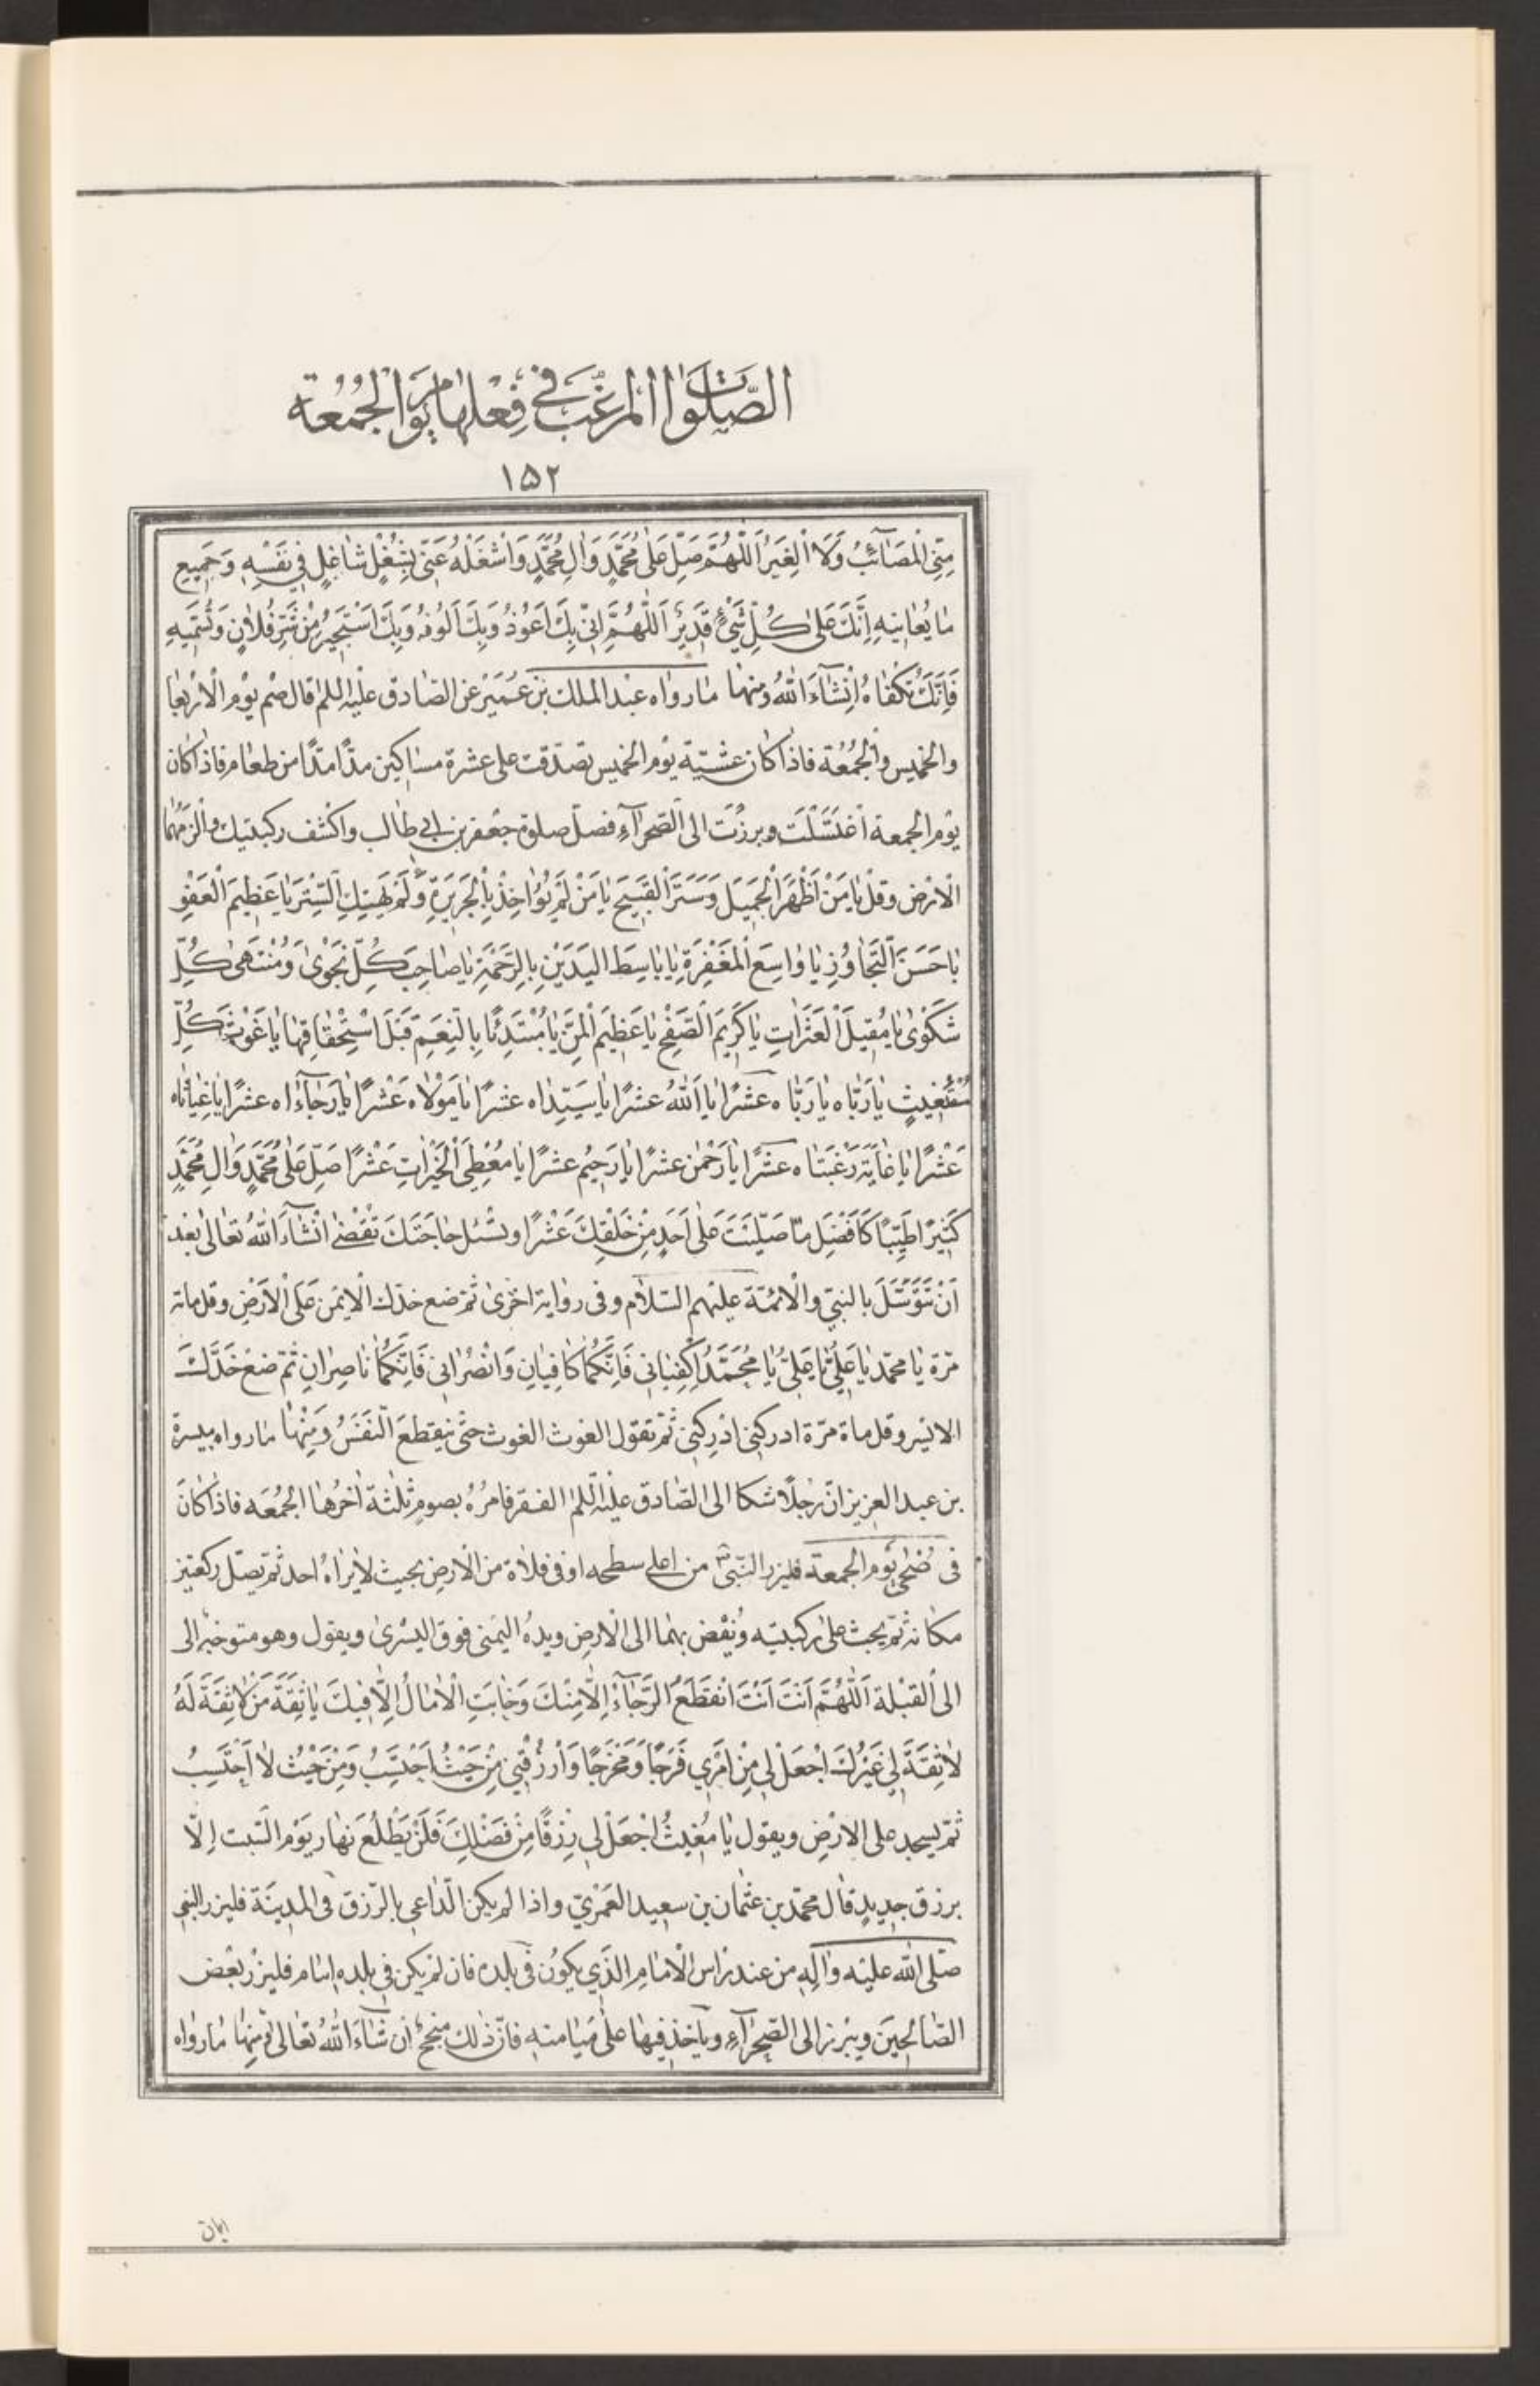 الصَّلَوات المرَغَّب في فِعْلها يَوم الجُمُعة
١٥٢
مِنِّي الْمَصَآئِبُ وَلَا الْغِيَرُ اَللّٰهُمَّ صَلِّ عَلىٰ مُحَمَّدٍ وَاٰلِ مُحَمَّدٍ وَاشْغَلْهُ عَنّي بِشُغْلٍ شٰاغِلٍ في نَفْسِهِ وَجَميعِ
مٰا يُعٰانيهِ اِنَّكَ عَلىٰ كُلِّ شَيْءٍ قَديرٌ اَللّٰهُمَّ اِنّي بِكَ اَعُوذُ وَبِكَ اَلُوذُ وَبِكَ اَسْتَجيرُ مِنْ شَرِّ فُلاٰنٍ وَتُسَمّيهِ
فَاِنَّكَ تُكْفٰاهُ اِنْشٰآءَ اللهُ ومنهٰا مٰا رواه عبْد الملك بْن عُمَيْر عن الصٰادق علَيْه السلم قال صُم يوْم الْارْبعٰا
والخميس والْجُمُعة فاذا كٰان عشيّة يوْم الخميس تصدّقت على عشرة مسٰاكين مدًّا مدًّا من طعٰام فاذا كان
يوْم الجمعة اغتسَلْتَ وبرزْتَ الى الصّحرٰآءِ فصلّ صلوة جعْفر بن ابي طٰالب واكشف ركبتيك والزمْهُمٰا
الْارْض وقلْ يٰا مَنْ اَظْهَرَ الْجَميلَ وَسَتَرَ الْقَبيحَ يٰا مَنْ لَمْ يُؤٰاخِذْ بِالْجَريرَةِ وَلَمْ يَهْتِكِ السِّتْرَ يٰا عَظيمَ الْعَفْوِ
يٰا حَسَنَ التَّجٰاوُزِ يٰا وٰاسِعَ الْمَغْفِرَةِ يٰا بٰاسِطَ الْيَدَيْنِ بِالرَّحْمَةِ يٰا صٰاحِبَ كُلِّ نَجْوىٰ وَمُنْتَهىٰ كُلِّ
شَكْوىٰ يٰا مُقيلَ الْعَثَرٰاتِ يٰا كَريمَ الصَّفْحِ يٰا عَظيمَ الْمَنِّ يٰا مُبْتَدِئًا بِالنِّعَمِ قَبْلَ اسْتِحْقٰاقِهٰا يٰا غَوْثَ كُلِّ
مُسْتَغيثٍ يٰا رَبّٰاه يٰا رَبّٰاه عشرًا يٰا اَللهُ عشرًا يٰا سَيّدٰاه عشرًا يٰا مَوْلاٰه عَشرًا يٰا رَجٰآءٰاه عشرًا يٰا غِيٰاثٰاه
عَشْرًا يٰا غٰايَةَ رَغْبَتٰاه عشرًا يٰا رَحْمٰن عشرًا يٰا رَحيم عشرًا يٰا مُعْطِيَ الْخَيْرٰاتِ عَشْرًا صَلِّ عَلىٰ مُحَمَّدٍ وَاٰلِ مُحَمَّدٍ
كَثيرًا طَيِّبًا كَاَفْضَلِ مٰا صَلَّيْتَ عَلىٰ اَحَدٍ مِنْ خَلْقِكَ عَشْرًا وتسْئل حٰاجَتَكَ تُقْضىٰ اِنْشٰآءَ اللهُ تعٰالىٰ بعْد
اَنْ تَتَوَسَّلَ بالنبيّ والْائمّة عليْهم السّلاٰم وفى روٰاية اخْرىٰ ثمّ ضع خدّك الْايمَن عَلَى الْاَرْضِ وقل مائة
مرّة يٰا محمّد يٰا عَلِيُّ يٰا عَلِيُّ يٰا مُحَمَّدُ اِكْفِيٰانى فَاِنَّكُمٰا كٰافِيٰانِ وَانْصُرٰانى فَاِنَّكُمٰا نٰاصِرٰانِ ثمّ ضعْ خَدَّكَ
الايْسر وقل مائة مرّة ادركنى ادْرِكْنى ثمّ تقول الغوث الغوث حتّى ينقطعَ النّفَسُ وَمِنْهٰا مٰا رواه ميسرة
بن عبد العزيز انّ رجلًا شكا الى الصّٰادق عليْه السّلم الفقر فامرُهُ بصومِ ثلٰثة اٰخرُهٰا الجُمُعَه فاذٰا كٰانَ
فى ضُحىٰ يَوْم الجمعة فليزر النّبىّ ص من اعلى سطحه اوْ فى فلاٰة من الْارضِ بحيث لاٰ يرٰاهُ احد ثمّ يصلّ ركعتين
مكٰانه ثمّ يجث علىٰ ركبتيْه ويُفْض بهمٰا الى الْارضِ ويدهُ اليمْنى فوق اليسْرىٰ ويقول وهو متوجّه الى
الى الْقبْلة اَللّٰهُمَّ اَنْتَ اَنْتَ انْقَطَعَ الرَّجٰآءُ اِلّٰا مِنْكَ وَخٰابَتِ الْاٰمٰالُ اِلّٰا فيكَ يٰا ثِقَةَ مَنْ لاٰ ثِقَةَ لَهُ
لاٰ ثِقَةَ لي غَيْرُكَ اجْعَلْ لي مِنْ اَمْري فَرَجًا وَمَخْرَجًا وَارْزُقْني مِنْ حَيْثُ اَحْتَسِبُ وَمِنْ حَيْثُ لاٰ اَحْتَسِبُ
ثمّ يسجد على الارْضِ ويقول يٰا مُغيثُ اجْعَلْ لي رِزْقًا مِنْ فَضْلِكَ فَلَنْ يَطْلُعَ نهٰار يَوْم السّبت اِلّٰا
برزق جديدٍ قٰال محمّد بن عثمٰان بن سعيد العَمْرىّ واذا لم يكن الدّاعى بالرّزق فى المدينَة فليزر النبىّ
صَلى الله عليْه واٰلِهِ من عند راس الْامٰامِ الّذي يكوُن فى بلده فان لمْ يكن في بلده امٰام فليزرْ بعْض
الصّٰالحينَ ويبْرز الى الصّحرٰآءِ ويٰأخذ فيهٰا علىٰ مَيٰامنه فانّ ذٰلك منجحٌ ان شٰآءَ اللهُ تعٰالىٰ ومنهٰا مٰا روٰاه